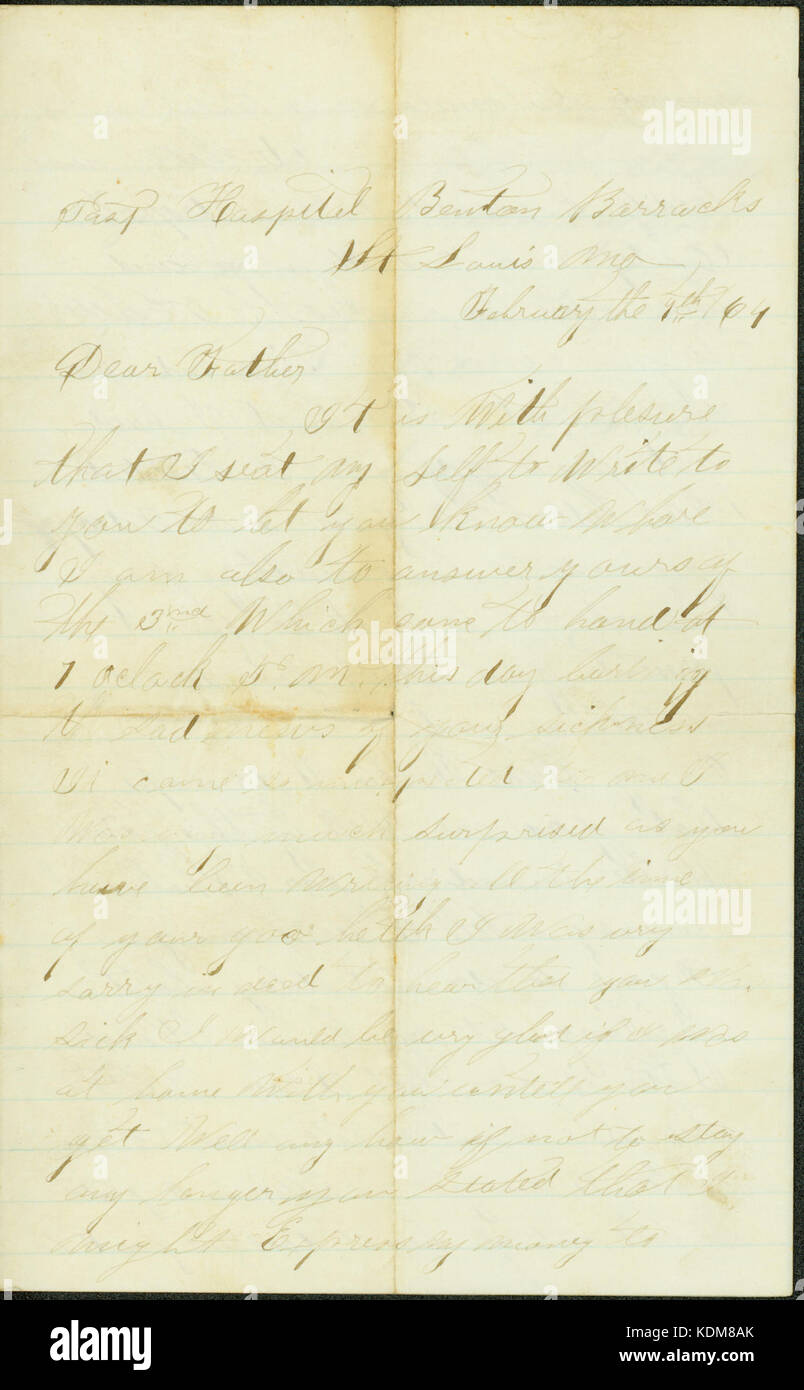 Post Hospitel Benton Barracks
St Louis Mo
February the 7th / 64
Dear Father
It is With plesure
that I seat my self to Write to
you to let you know Whare
I am also to answer yours of
the 3nd Which come to hand at
7 oclock P. M. this day
sad news of your sickness
It came so to me I
Was much surprised as you
have been all the time
of your good helth I Was very
sorry in deed to hear that you
sick I Would be very glad if I Was
at home With you untill you
get Well any how if not to stay
any longer you stated that
might Express my money to
alamy
alamy
alamy
alamy
KDM8AK
www.alamy.com